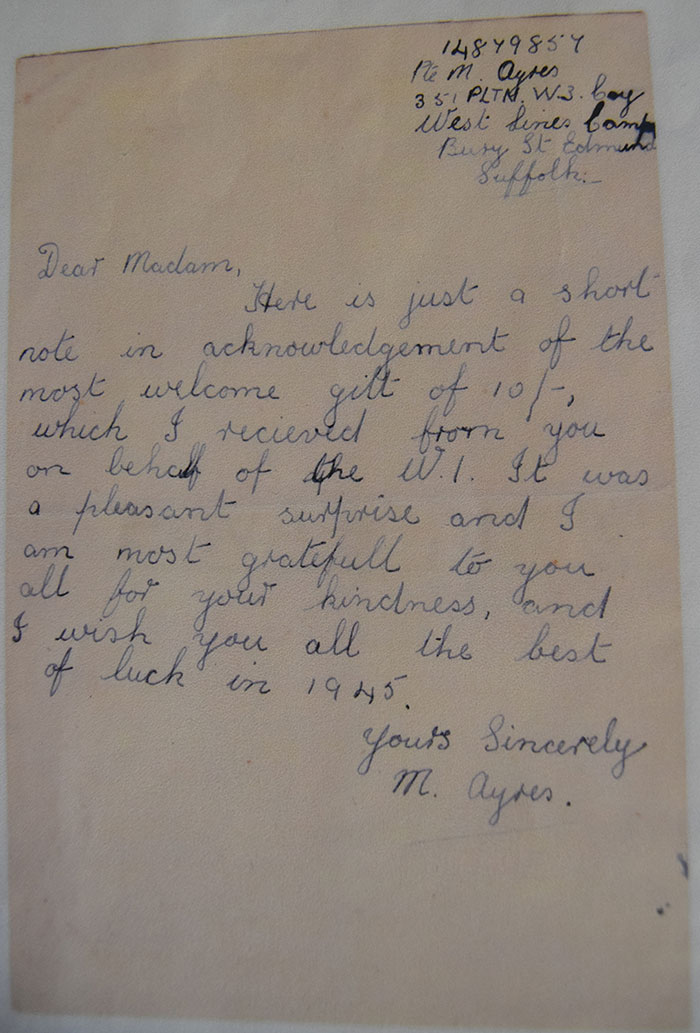 14879857
Pte M. Ayres
351 PLTN. W3. Coy
West Lines Camp
Bury St Edmund
Suffolk.
Dear Madam,
Here is just a short
note in acknowledgement of the
most welcome gift of 10/-,
which I recieved from you
on behalf of the W.I. It was
a pleasant surprise and I
am most gratefull to you
all for your kindness, and
I wish you all the best
of luck in 1945.
Yours Sincerely
M. Ayres.